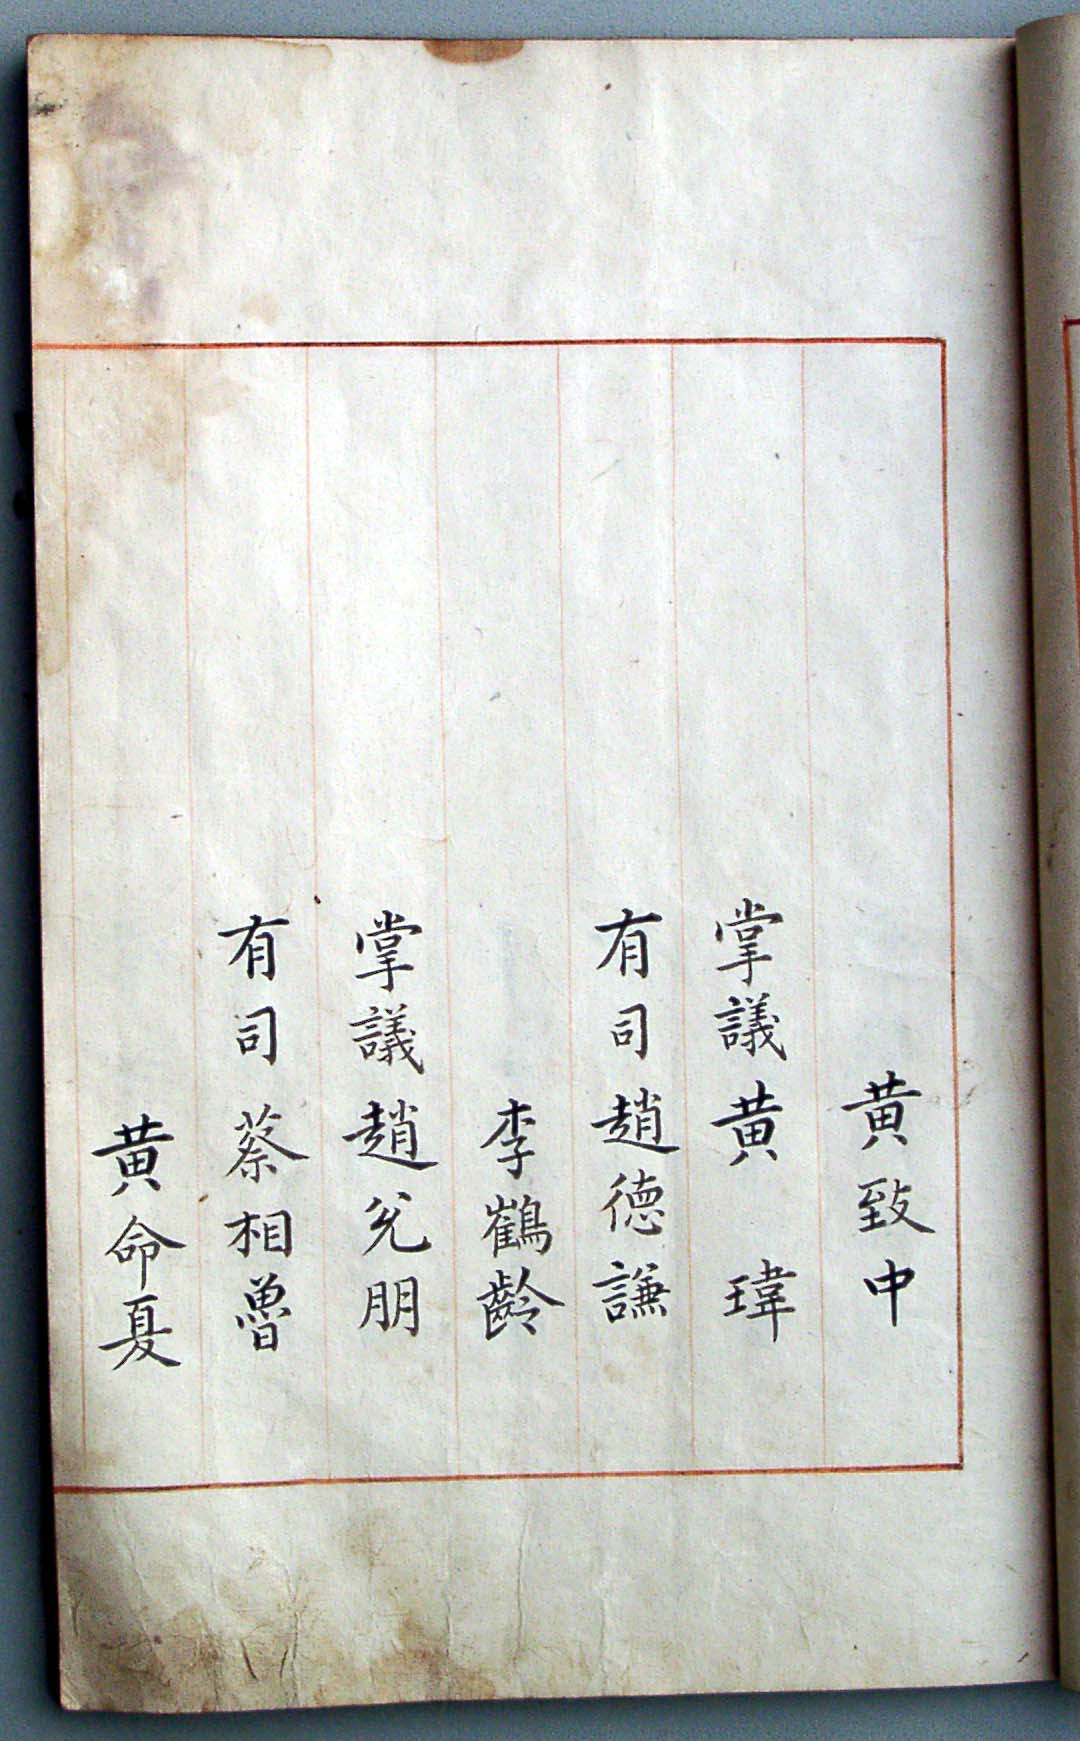 黄致中
掌議黄 瑋
有司趙德謙
李鶴齡
掌議趙兊朋
有司蔡相魯
黄命夏